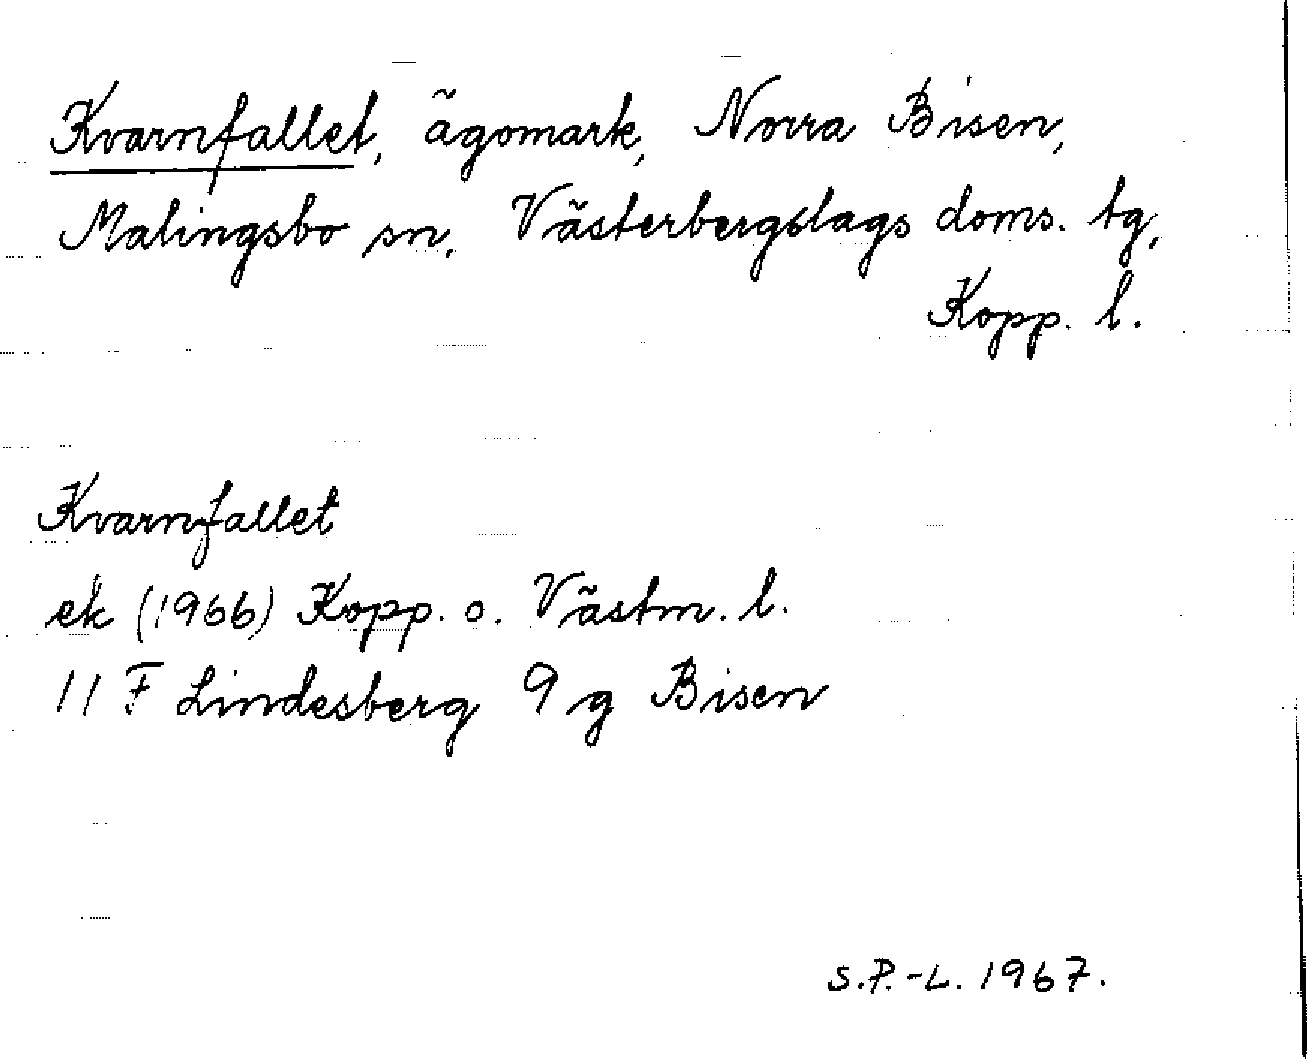 Kvarnfallet, ägomark, Norra Bisen,
Malingsbo sn. Västerbergslags doms. tg,
Kopp. l.
Kvarnfallet
ek (1966) Kopp. o. Västm. l.
11 F Lindesberg 9 g Bisen
S.P.-L. 1967.